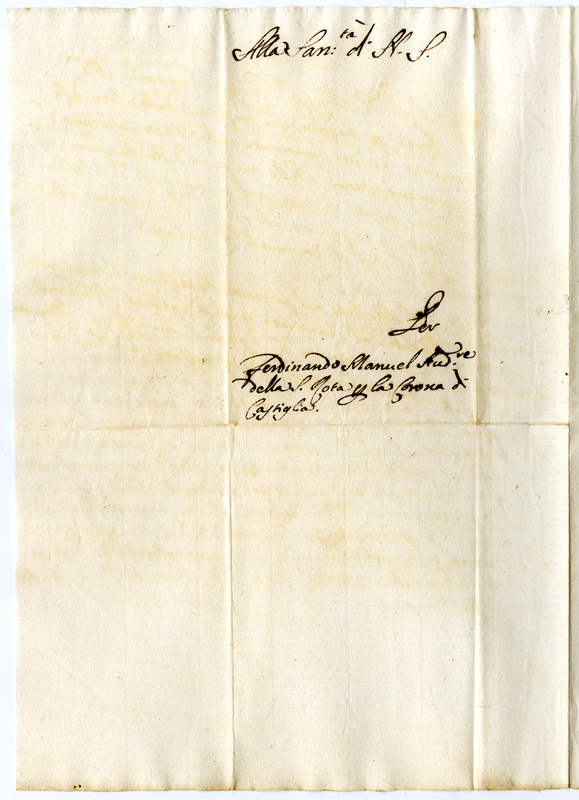 Alla San:tà di N. S.
Per
Ferdinando Manuel Aud.re
della S. Rota p la Corona di
Castiglia.